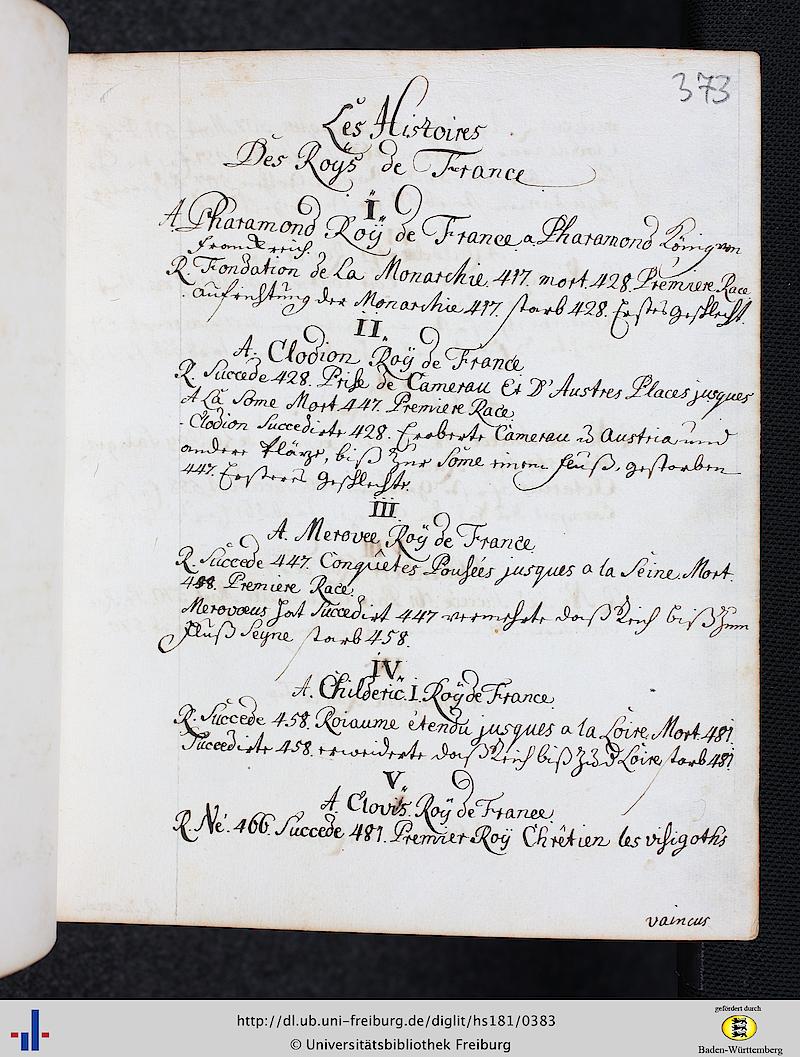 373
Les Histoires
Des Roÿs de France
I.
A Pharamond Roÿ de France a Pharamond König von
Franckreich.
R. Fondation de La Monarchie 417. mort 428. Premiere Race
Aufrichtung der Monarchie 417. starb 428. Erstes Geschlecht.
II.
A. Clodion Roÿ de France
R. Succede 428. Prise de Camerau Et D'Austres Places jusques
A La Some Mort 447. Premiere Race
Clodion Succedirte 428. Eroberte Camerau u Austria und
andere Plärze, biß zur Some einem Fluß. gestorben
447. Ersteres Geschlechte.
III
A. Merovee Roÿ de France
R. Succede 447. Conquêtes Pousées jusques a la Seine. Mort.
458. Premiere Race
Meroveus hat Succedirt 447 vermehrte daß Reich biß zum
Fluß Seyne starb 458.
IV.
A. Childeric. I. Roÿ de France
R. Succede 458. Roiaume étendu jusques a la Loire Mort 481
Succedirte 458. erweiderte daß Reich biß zu d Loire starb 481.
V
A Clovis. Roÿ de France
R. Né. 466. Succede 481. Premier Roÿ Chrêtien les visigoths
vaincus
http://dl.ub.uni-freiburg.de/diglit/hs181/0383
© Universitätsbibliothek Freiburg
gefördert durch
Baden-Württemberg